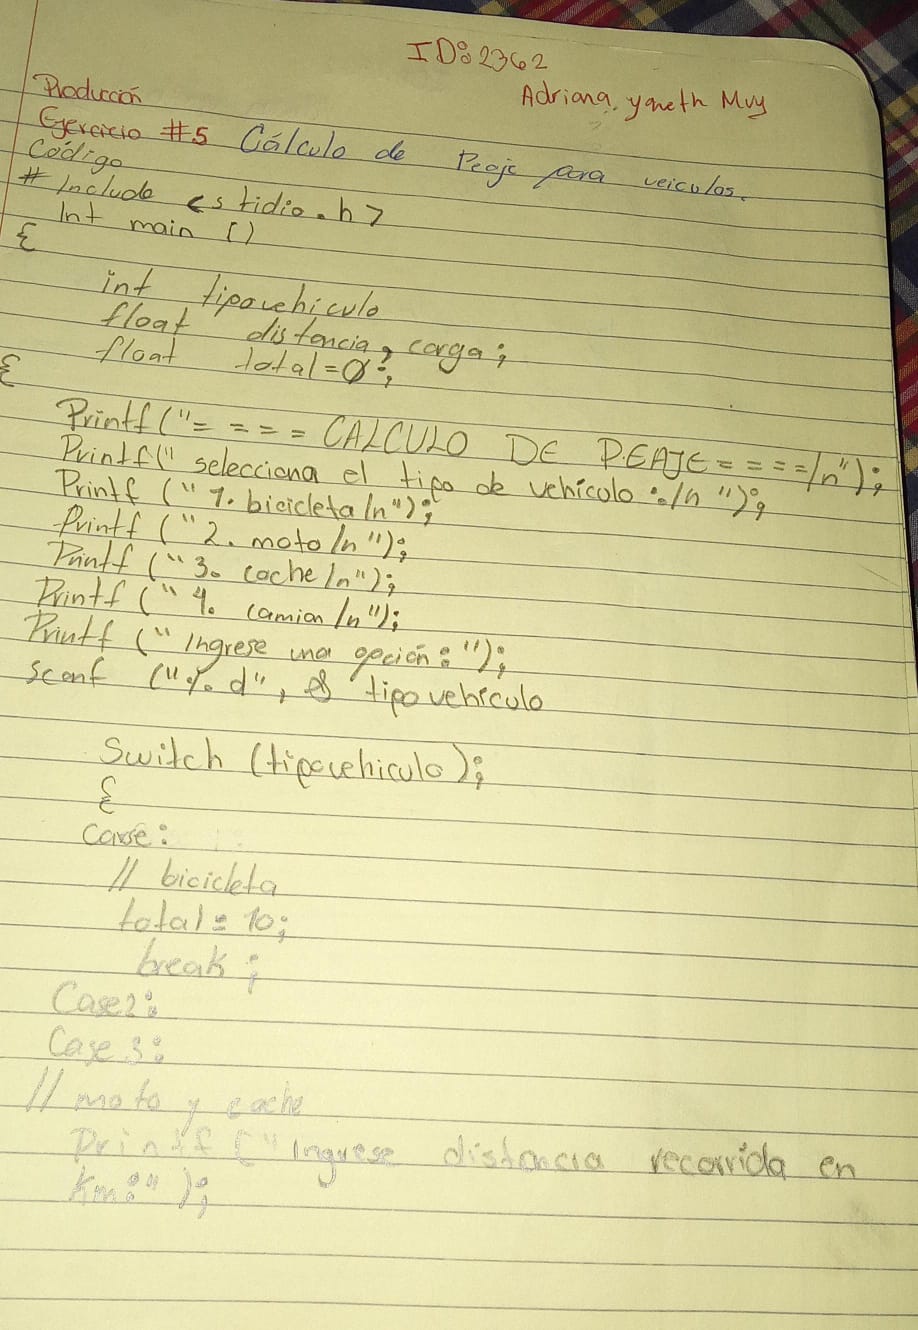 ID: 2362
Adriana. yaneth Muy
Producción
Ejercicio #5 Cálculo de Peaje para veiculos.
Código
# Include <stidio.h>
Int main ()
{
int tipovehiculo
float distancia, carga;
float total=0;
{
Printf("====CALCULO DE PEAJE====/n");
Printf(" selecciona el tipo de vehículo:/n ");
Printf (" 1. bicicleta/n");
Printf (" 2. moto/n");
Printf (" 3. coche/n");
Printf (" 4. camion/n");
Printf (" Ingrese una opción:");
Scanf ("%d", & tipovehículo
Switch (tipovehiculo);
{
Case:
// bicicleta
total= 10;
break;
Case2:
Case 3:
// moto y coche
Printf (" Ingrese distancia recorrida en
Km:" );